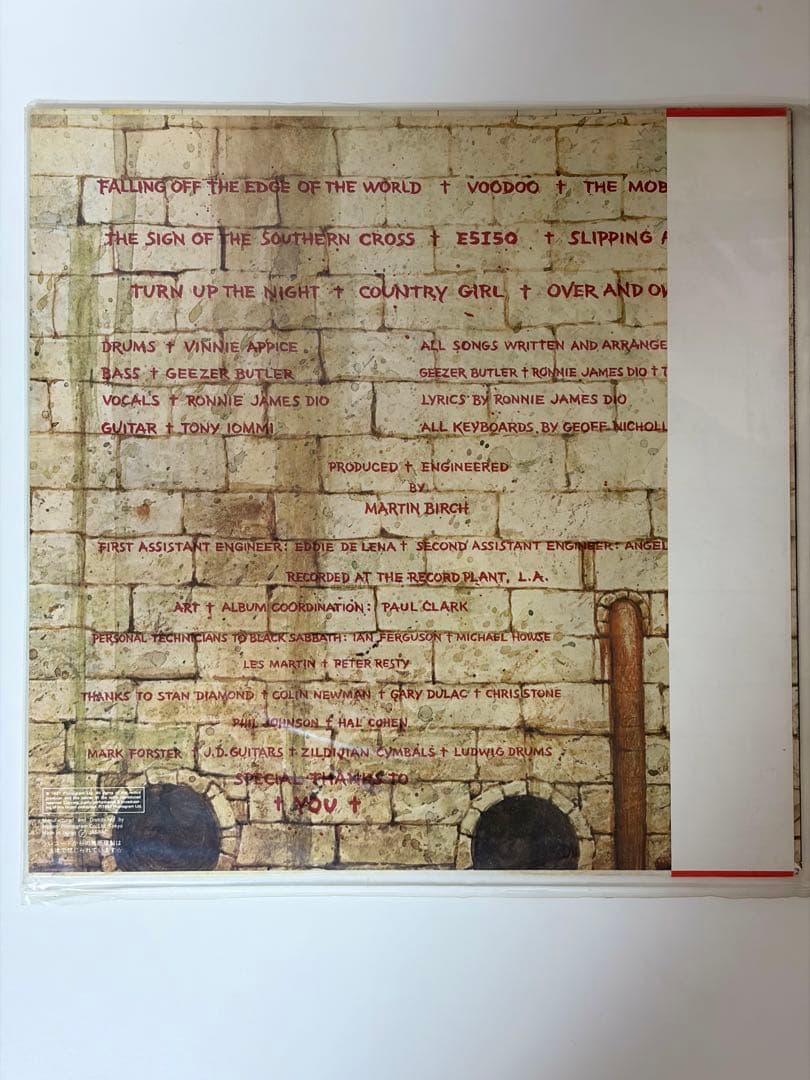 FALLING OFF THE EDGE OF THE WORLD † VOODOO † THE MOB
THE SIGN OF THE SOUTHERN CROSS † E5150 † SLIPPING A
TURN UP THE NIGHT † COUNTRY GIRL † OVER AND OV
DRUMS † VINNIE APPICE
BASS † GEEZER BUTLER
VOCALS † RONNIE JAMES DIO
GUITAR † TONY IOMMI
ALL SONGS WRITTEN AND ARRANGE
GEEZER BUTLER † RONNIE JAMES DIO † T
LYRICS BY RONNIE JAMES DIO
ALL KEYBOARDS BY GEOFF NICHOLL
PRODUCED † ENGINEERED
BY
MARTIN BIRCH
FIRST ASSISTANT ENGINEER: EDDIE DE LENA † SECOND ASSISTANT ENGINEER: ANGEL
RECORDED AT THE RECORD PLANT, L.A.
ART † ALBUM COORDINATION: PAUL CLARK
PERSONAL TECHNICIANS TO BLACK SABBATH: IAN FERGUSON † MICHAEL HOWSE
LES MARTIN † PETER RESTY
THANKS TO STAN DIAMOND † COLIN NEWMAN † GARY DULAC † CHRIS STONE
PHIL JOHNSON † HAL COHEN
MARK FORSTER † J.D. GUITARS † ZILDIJIAN CYMBALS † LUDWIG DRUMS
SPECIAL THANKS TO
† YOU †
Manufactured and Distributed by
Made in Japan